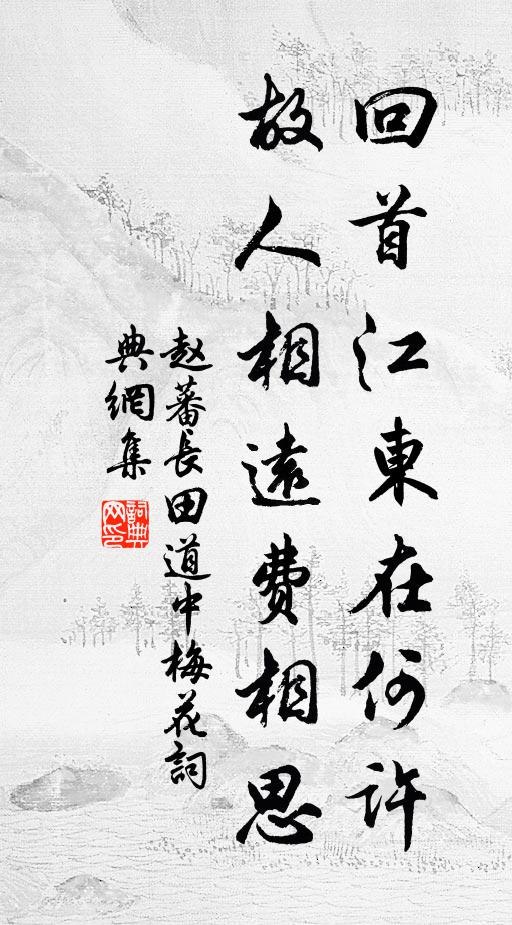 回首江東在何許
故人相遠費相思
赵蕃長田道中梅花詞
典網集
詞典
网印